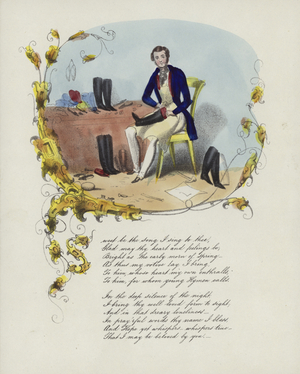 and be the song I sing to thee,
Glad may thy heart and feelings be,
Bright as the early morn of Spring
As thus my votive lay I bring
To him whose heart my own enthralls
To him, for whom young Hymen calls

In the deep silence of the night
I bring thy well kind form to sight
And in that dreary loneliness
In pray'rful words thy name I bless
And Hope yet whispers, whispers true
That I may be beloved by you.